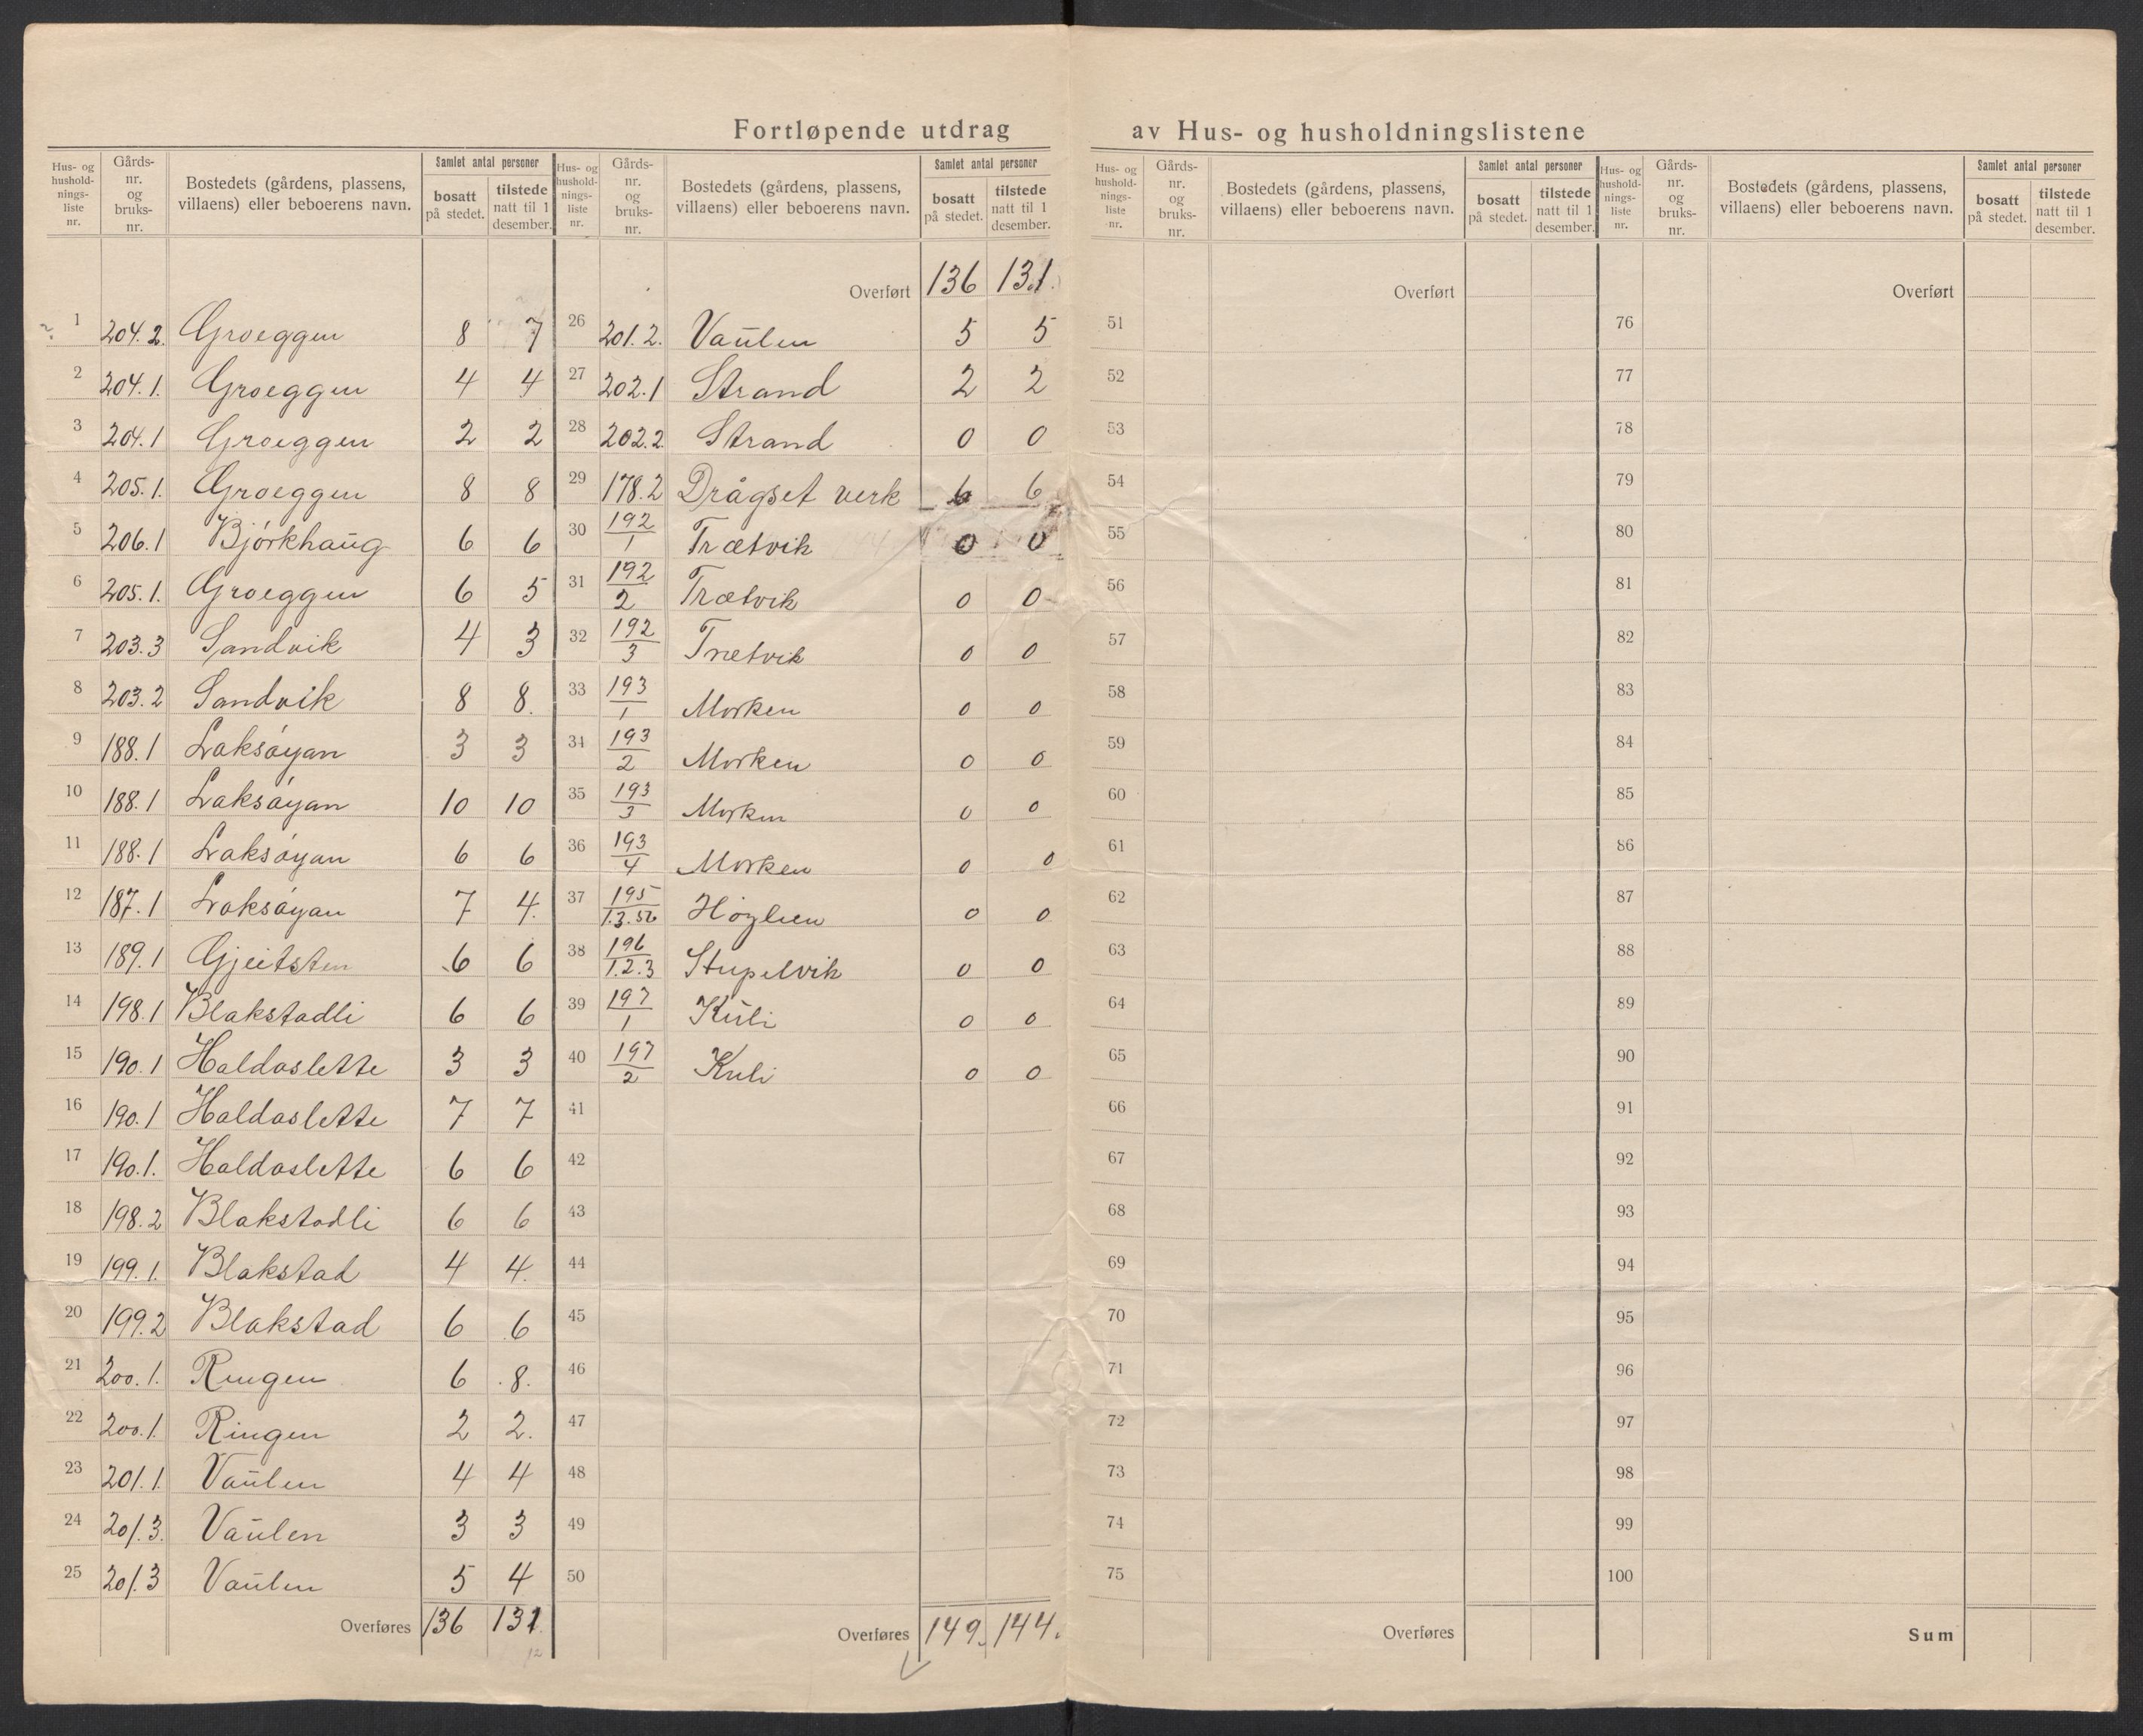 Fortløpende utdrag av Hus- og husholdningslistene
Hus- og hushold-nings-liste nr. Gårds-nr. og bruks-nr. Bostedets (gårdens, plassens, villaens) eller beboerens navn. Samlet antal personer bosatt på stedet. tilstede natt til 1 desember.
1 204.2. Groeggen 8 7
2 204.1. Groeggen 4 4
3 204.1 Groeggen 2 2
4 205.1. Groeggen 8 8
5 206.1 Bjórkhaŭg 6 6
6 205.1. Groeggen 6 5
7 203.3 Sandvik 4 3
8 203.2 Sandvik 8 8.
9 188.1 Laksóyan 3 3
10 188.1 Laksóyan 10 10
11 188.1 Laksóyan 6 6
12 187.1 Laksóyan 7 4.
13 189.1 Gjeitsten 6 6
14 198.1 Blakstadli 6 6
15 190.1 Haldaslette 3 3
16 190.1 Haldaslette 7 7
17 190.1. Haldaslette 6 6
18 198.2 Blakstadli 6 6
19 199.1. Blakstad 4 4.
20 199.2 Blakstad 6 6
21 200.1. Ringen 6 8.
22 200.1. Ringen 2 2.
23 201.1. Vaŭlen 4 4
24 201.3. Vaŭlen 3 3
25 201.3 Vaŭlen 5 4
Overføres 136 131.
12
Hus- og hushold-nings-liste nr. Gårds-nr. og bruks-nr. Bostedets (gårdens, plassens, villaens) eller beboerens navn. Samlet antal personer bosatt på stedet. tilstede natt til 1 desember.
Overført 136 131.
26 201.2. Vaŭlen 5 5
27 202.1 Strand 2 2
28 202.2. Strand 0 0
29 178.2 Drågset verk 6 6
30 192/1 Trætvik 0 0
31 192/2 Trætvik 0 0
32 192/3 Trætvik 0 0
33 193/1 Morken 0 0
34 193/2 Morken 0 0
35 193/3 Morken 0 0
36 193/4 Morken 0 0
37 195/1.3.56 Høylien 0 0
38 196/1.2.3 Stupelvik 0 0
39 197/1 Kŭli 0 0
40 197/2 Kuli 0 0
41
42
43
44
45
46
47
48
49
50
Overføres 149. 144.
Hus- og hushold-nings-liste nr. Gårds-nr. og bruks-nr. Bostedets (gårdens, plassens, villaens) eller beboerens navn. Samlet antal personer bosatt på stedet. tilstede natt til 1 desember.
Overført
51
52
53
54
55
56
57
58
59
60
61
62
63
64
65
66
67
68
69
70
71
72
73
74
75
Overføres
Hus- og hushold-nings-liste nr. Gårds-nr. og bruks-nr. Bostedets (gårdens, plassens, villaens) eller beboerens navn. Samlet antal personer bosatt på stedet. tilstede natt til 1 desember.
Overført
76
77
78
79
80
81
82
83
84
85
86
87
88
89
90
91
92
93
94
95
96
97
98
99
100
Sum